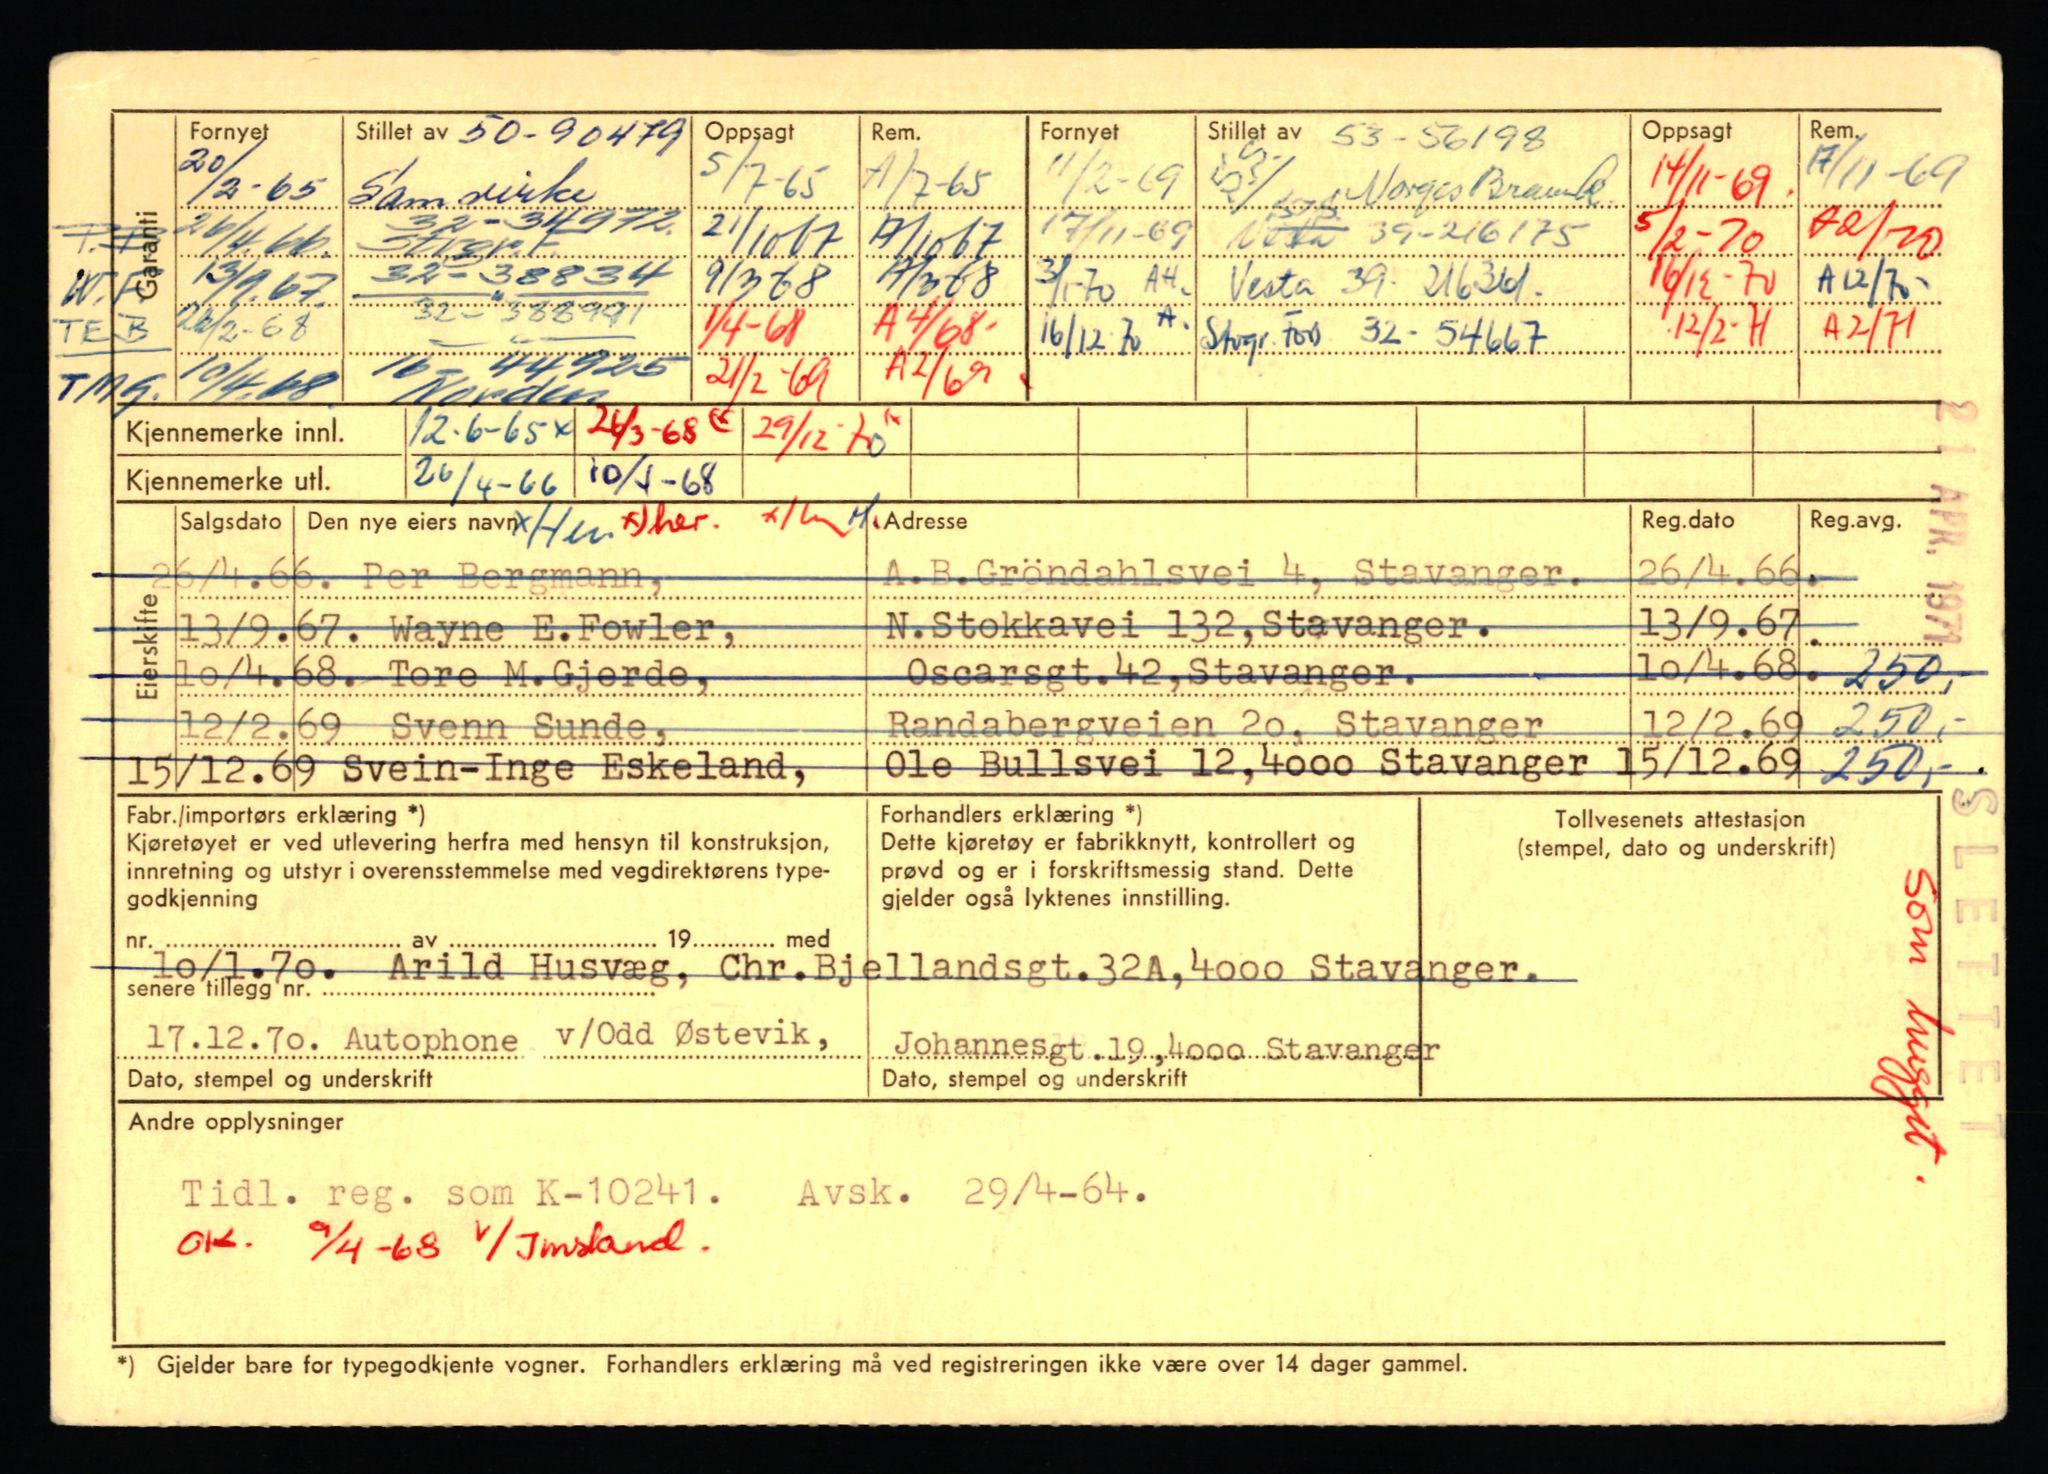 Garanti
Fornyet Stillet av 50-90479 Oppsagt Rem. Fornyet Stillet av 53-56198 Oppsagt Rem.
20/2-65 Samvirke 5/7-65 A/7-65 11/2-69 Norges Brannk. 14/11-69. 17/11-69
26/4.66. 32-34972. 21/10 67 A/10 67 17/11-69 Vesta 39-216175 5/2-70 A2/70
13/9.67. 32-38834 9/3 68 A/3 68 3/1-70 AH. Vesta 39- 16/12-70 A12/70-
TEB 32- 1/4-68 A4/68- 16/12 70 A. Stvgr. 32-54667 12/2-71 A2/71
TMG. 10/4.68. 16-44925 Norden 21/2-69 A2/69
Kjennemerke innl. 12-6-65x 26/3-68 29/12-70
Kjennemerke utl. 26/4-66
Eierskifte
Salgsdato Den nye eiers navn x/Hen *)her. Adresse Reg.dato Reg.avg.
26/4.66. Per Bergmann, A.B.Gröndahlsvei 4, Stavanger. 26/4.66.
13/9.67. Wayne E.Fowler, N.Stokkavei 132,Stavanger. 13/9.67.
10/4.68. Tore M.Gjerde, Oscarsgt.42,Stavanger. 10/4.68. 250,-
12/2.69 Svenn Sunde, Randabergveien 20, Stavanger 12/2.69 250,-
15/12.69 Svein-Inge Eskeland, Ole Bullsvei 12,4000 Stavanger 15/12.69 250,-.
Fabr./importørs erklæring *)
Kjøretøyet er ved utlevering herfra med hensyn til konstruksjon,
innretning og utstyr i overensstemmelse med vegdirektørens type-
godkjenning
nr. av 19 med
senere tillegg nr.
Forhandlers erklæring *)
Dette kjøretøy er fabrikknytt, kontrollert og
prøvd og er i forskriftsmessig stand. Dette
gjelder også lyktenes innstilling.
Tollvesenets attestasjon
(stempel, dato og underskrift)
10/1.70. Arild Husvæg, Chr.Bjellandsgt.32A,4000 Stavanger.
17.12.70. Autophone v/Odd Østevik, Johannesgt.19,4000 Stavanger
Dato, stempel og underskrift Dato, stempel og underskrift
Andre opplysninger
Tidl. reg. som K-10241. Avsk. 29/4-64.
OK. 9/4-68 v/Imsland.
*) Gjelder bare for typegodkjente vogner. Forhandlers erklæring må ved registreringen ikke være over 14 dager gammel.
21 APR. 1971
SLETTET
som hugget.